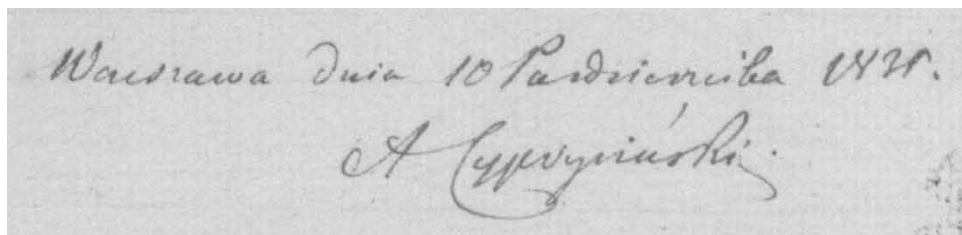 Warszawa dnia 10 Pazdziernika
A Cypryniński.